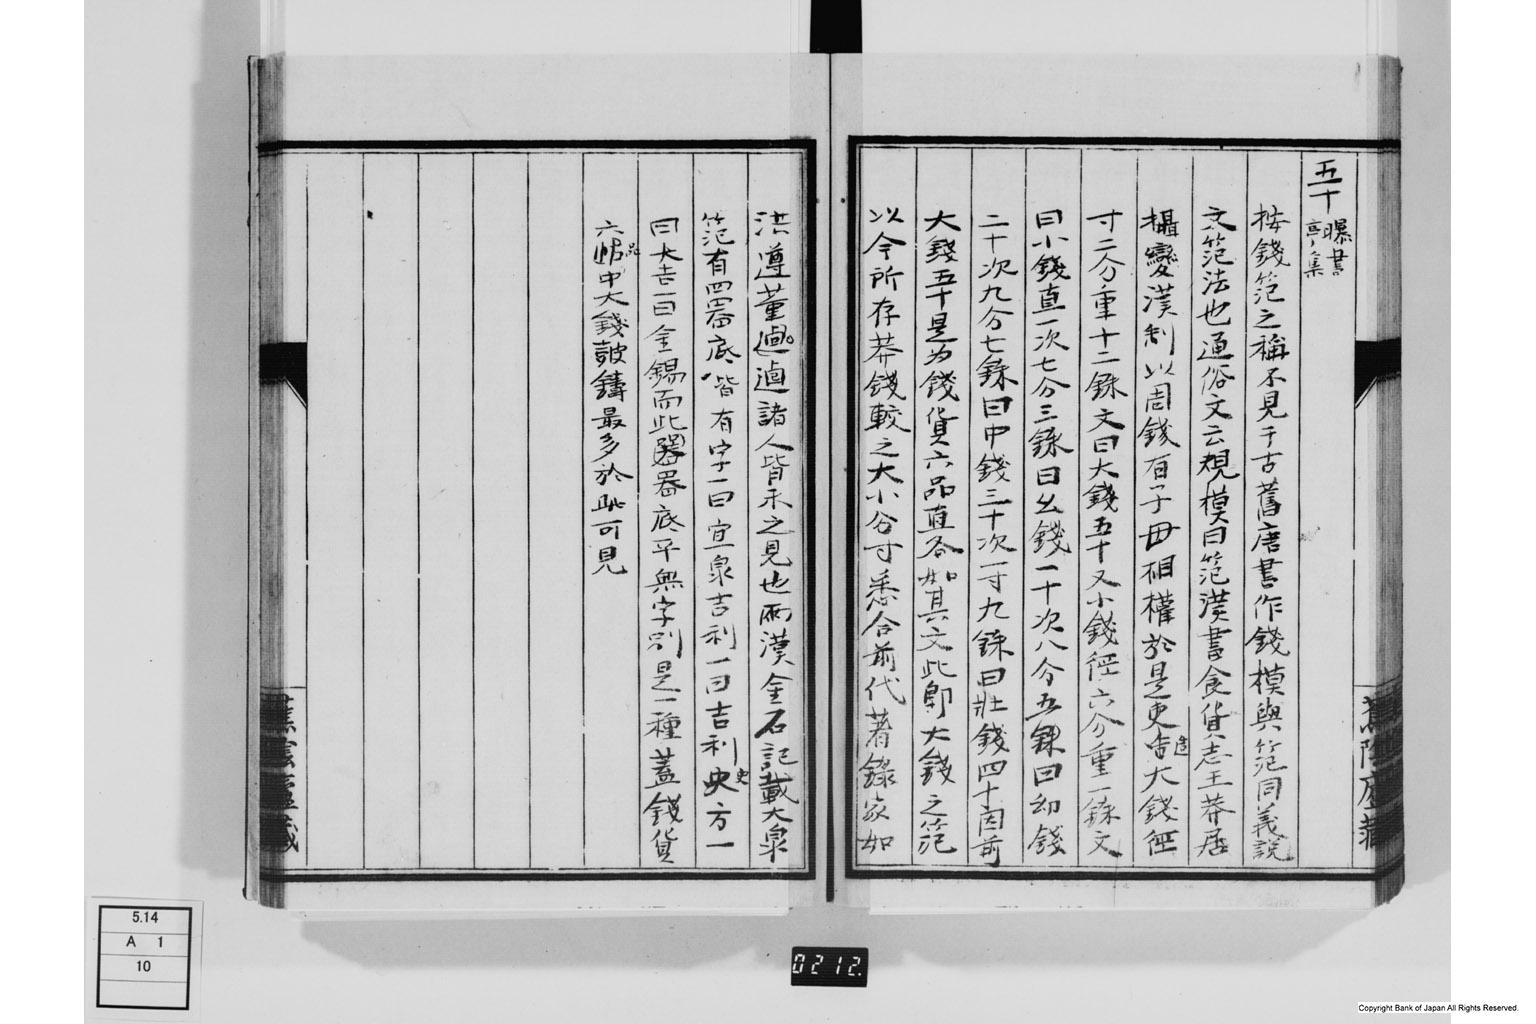 五十曝書亭集
按錢笵之稱不見于古舊唐書作錢模與笵同義說
文笵法也通俗文云規模曰笵漢書食貨志王莽居
攝變漢制以周錢有子母相權於是更造大錢徑
寸二分重十二銖文曰大錢五十又小錢徑六分重一銖文
曰小錢直一次七分三銖曰幺錢一十次八分五銖曰幼錢
二十次九分七銖曰中錢三十次一寸九銖曰壯錢四十因前
大錢五十是为錢貨六品直各如其文此即大錢之笵
以今所存莽錢較之大小分寸悉合前代著錄家如
洪遵董逌諸人皆未之見也兩漢金石記載大泉
笵有四器底皆有字一曰宜泉吉利一曰吉利史方一
曰大吉一曰金錫而此器底平無字別是一種蓋錢貨
六品中大錢鼓鑄最多於此可見
蕉陰廬藏
5.14
A 1
10
0212.
Copyright Bank of Japan All Rights Reserved.